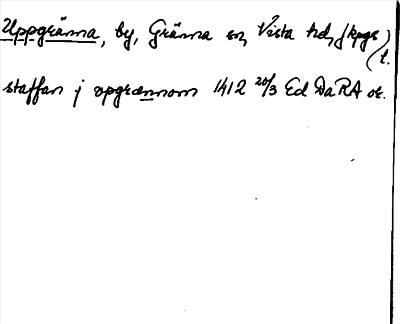 Uppgränna, by, Gränna sn, Vista hd, Jkpgs l.
staffan j opgrænnom 1412 20/3 Ed DaRA or.